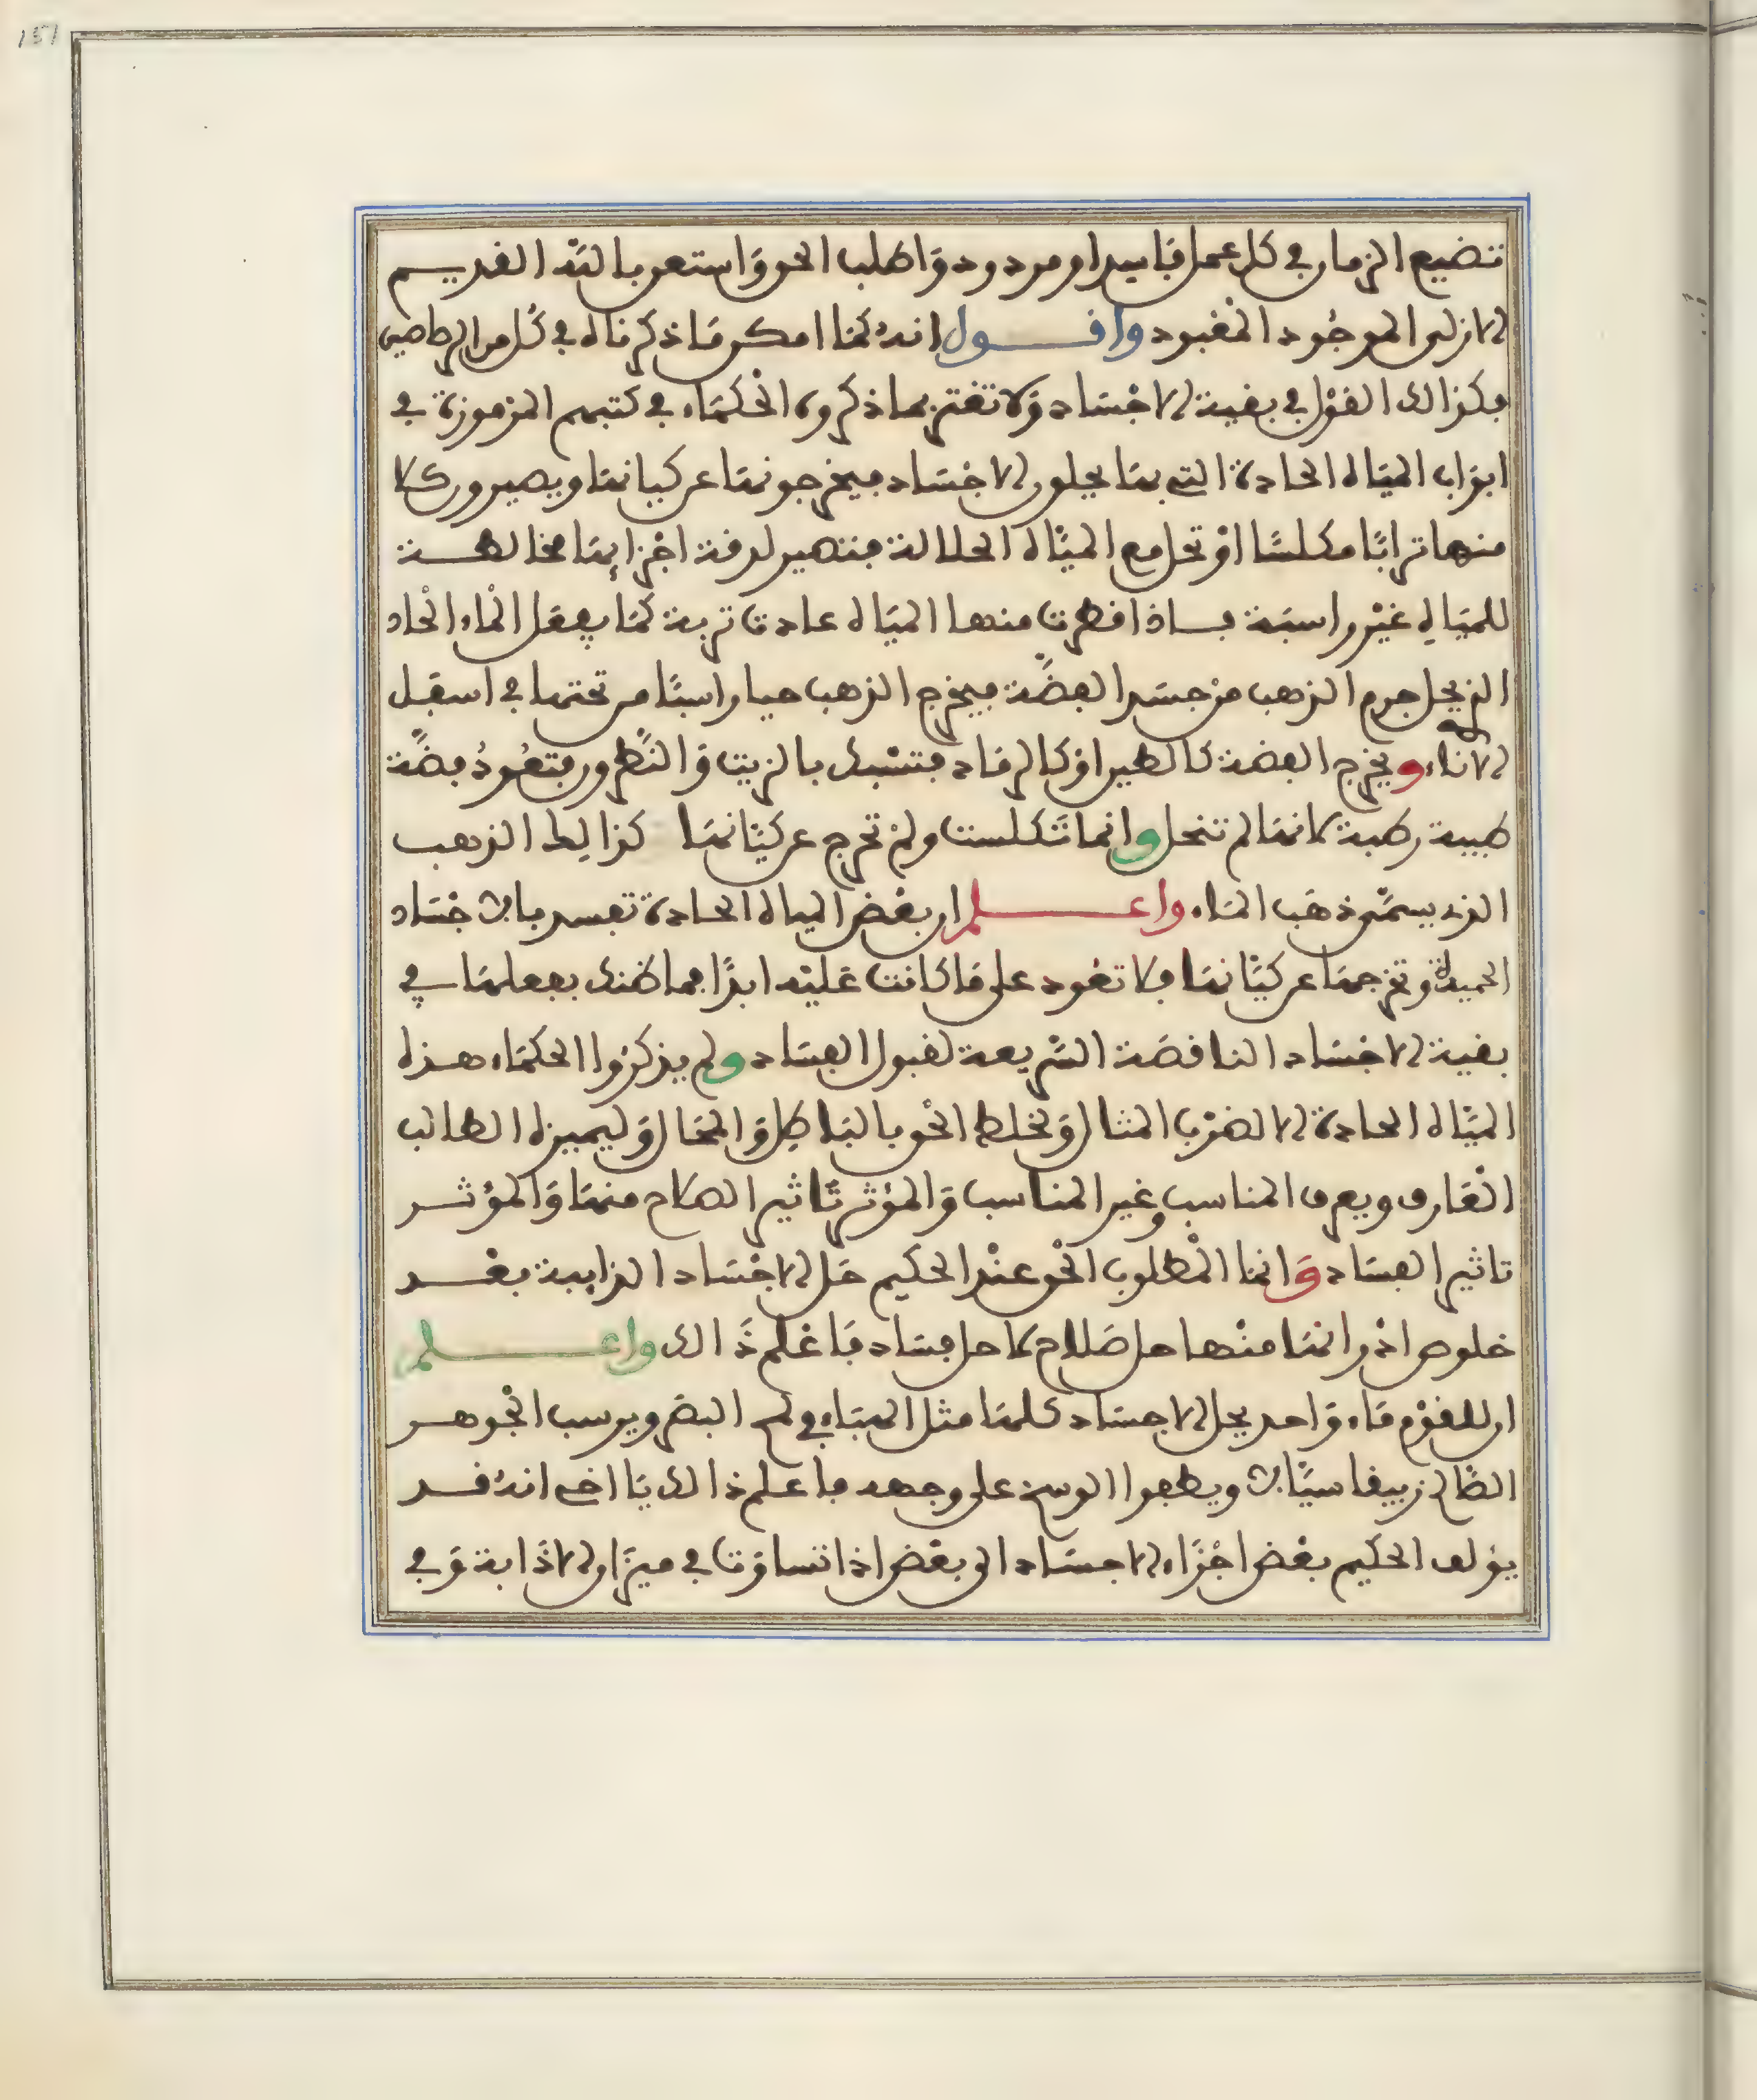 151
تضيع الزمان في كل عمل فاسد او مردود وَاطلب الحق وَاستعن باللَّه القديم
الازلى الموجُود المعْبود واقول انهُ كمَا امكن مَا ذكرناه في كُل من الرصاصين
فكذالك القوْل في بقية الاجْسَاد وَلا تغتر بما ذكروه الحْكمَاء في كتبهم المرموزة في
ابوَاب الميَاه الحادة التى بهَا يحلون الاجْسَاد فيخرجونهَا عن كيانهَا ويصيرون كلا
منها ترابًا مكلسًا اوْ تحل مع الميَاه الحلالة فتصير لرقة اجْزايهَا مخالطة
للميَاه غيْر راسبَة فاذا قطرت منها الميَاه عادت تربة كمَا يفعل المْاء الحْاد
الذى يحل جرم الذهب من جسَد الفضَّة فيخرج الذهب حيا راسبًا من تحتها في اسفل
الاناء ويخرج الفضة كالطين اوْ كالرمَاد فتسْبك بالزيت وَالنَّطرون فتعُودُ فضَّة
طيبة رطبة لانهَا لم تنحل وانما تَكلست ولمْ تخرج عن كيَانهَا كذالِك الذهب
الذى يسمَّى ذهَب المَاء واعلم ان بعْض المياه الحادة تفسد بالاجْسَاد
الحميدة وتخرجهَا عن كيَانهَا فلا تعُود على مَا كانت عَليْه ابدًا فما ظنك بفعلهَا في
بقية الاجْسَاد الناقصَة السَّريعة لقبول الفسَاد ولم يذكرُوا الحكمَاء هذه
الميَاه الحادة الا لضرْب المثال وَتخليط الحْق بالبَاطِل وَالمحَال وَليميزه الطالب
العَارف ويعرف المناسب وغير المناسب وَالمؤثر تَاثير الصلاح منهَا وَالمؤثر
تاثير الفسَاد وَانمَا المْطلوب الحْق عنْد الحكيم حَل الاجْسَاد الذايبة بعْد
خلوص اذرانهَا منْها حل صَلاح لا حل فسَاد فَاعْلم ذَالك واعلم
ان للقوْم مَاء وَاحد يحل الاجسَاد كلهَا مثل الميَاه في لمح البصَر ويرسب الجْوهر
الصَّافى زيبقا سيَّالا ويطفوا الوسخ على وجهه فاعلم ذالك يَا اخى انهُ قد
يؤلف الحكيم بعْض اجْزَاء الاجسَاد الى بعْض اذا تساوَت في ميزَان الاذَابة وَفى